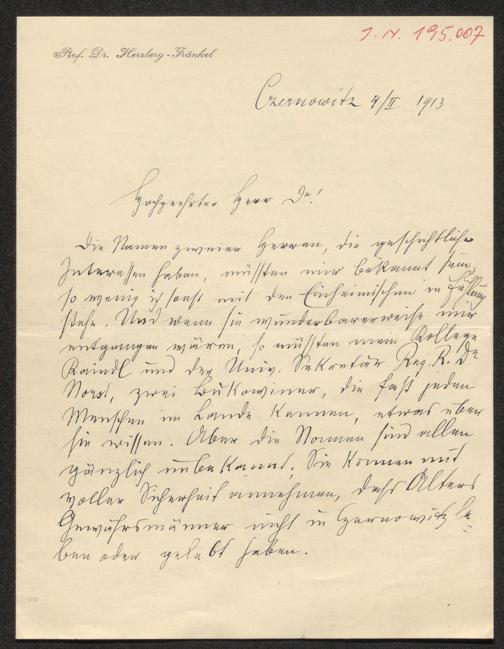 J. N. 195.007
Prof. Dr. Herzberg-Fränkel
Czernowitz 4/II 1913
Hochgeehrter Herr Dr!
Die Namen zweier Herren, die geschichtliche
Interessen haben, müssten mir bekannt sein,
so wenig ich sonst mit den Einheimischen in Fühlung
stehe. Und wenn sie wunderbarerweise mir
entgangen wären, so müssten mein Kollege
Kaindl und der Univ. Sekretär Reg. R. Dr
Norst, zwei Bukowiner, die fast jeden
Menschen im Lande kennen, etwas über
sie wissen. Aber die Namen sind allen
gänzlich unbekannt. Sie können mit
voller Sicherheit annehmen, dass Alters
Gewährsmänner nicht in Czernowitz le-
ben oder gelebt haben.